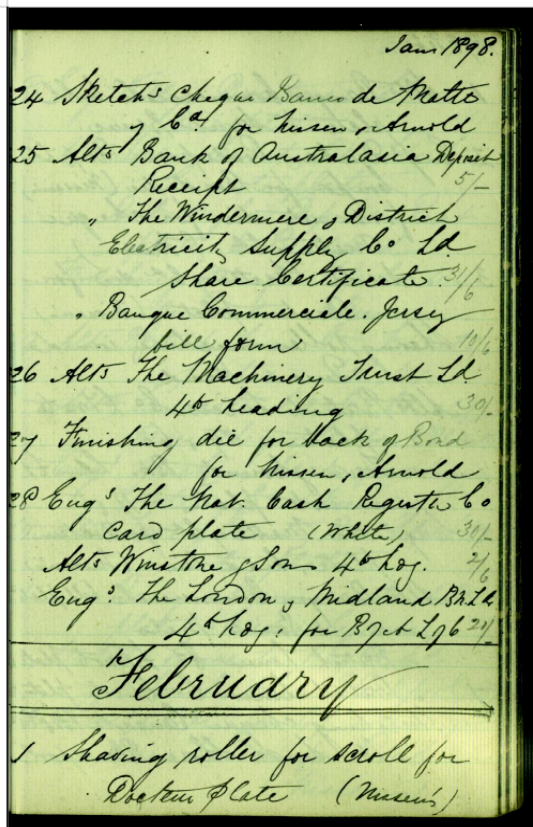 Jan 1898.
24 Sketchs cheque Banco de Matto
& Ca. for Nissen & Arnold
25 Alts Bank of Australasia Deposit
Receipt 5/-
" The Windermere & District
Electricity Supply Co Ld.
Share Certificate. 31/6
" Banque Commerciale. Jersey
bill form 10/6
26 Alts The Machinery Trust Ld
4to heading 30/-
27 Finishing die for back of Bond
for Nissen & Arnold
28 Engs The Nat. Cash Register Co
Card plate (White) 30/-
Alts Winstone & Sons 4to hdg. 2/6
Engs. The London & Midland Bk Ld.
4to hdg. for
February
1 Shaving roller for scroll for
plate (Nissen's)